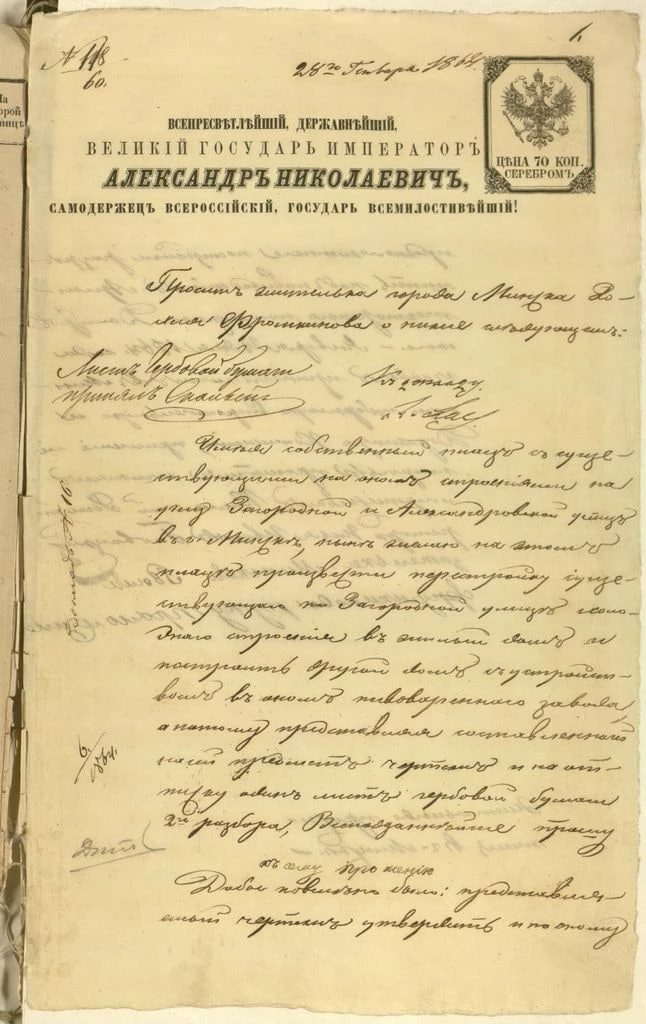 1.
№ 118
60.
28го Генваря 1864.
ВСЕПРЕСВѢТЛѢЙШІЙ, ДЕРЖАВНѢЙШІЙ,
ВЕЛИКІЙ ГОСУДАРЬ ИМПЕРАТОРЪ
АЛЕКСАНДРЪ НИКОЛАЕВИЧЪ,
САМОДЕРЖЕЦЪ ВСЕРОССІЙСКІЙ, ГОСУДАРЬ ВСЕМИЛОСТИВѢЙШІЙ!
ЦѢНА 70 КОП.
СЕРЕБРОМЪ.
Проситъ жителька города Минска Ро-
хля Фрумкинова о ниже слѣдующемъ:
Листъ гербовой бумаги
принялъ
Къ докладу.
Имѣя собственный плацъ съ суще-
ствующими на ономъ строеніями на
углу Загородной и Александровской улицъ
въ г. Минскѣ, нынѣ желаю на этомъ
плацѣ произвести перестройку суще-
ствующаго по Загородной улицѣ холо-
днаго строенія въ жилый домъ и
построить другой домъ съ устройст-
вомъ въ ономъ пивовареннаго завода,
а потому представляя составленный
на сей предметъ чертежъ и на от-
писку одинъ листъ гербовой бумаги
2го разбора, Всеподданнѣйше прошу
къ сему прошенію
Дабы повелѣно было: представляе-
мый чертежъ утвердить и по оному
6/1864.